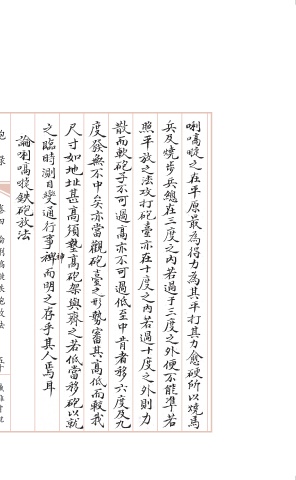 唎嘀噠之在平原最為得力為其平打其力愈硬所以燒馬
兵及燒步兵總在三度之內若過于三度之外便不能準若
照平放之法攻打砲臺亦在十度之內若過十度之外則力
散而軟砲子不可過高亦不可過低至中肯者移六度及九
度發無不中矣亦當觀砲臺之形勢審其高低而較我
尺寸如地址甚高須墊高砲架與齊之若低當移砲以就
之臨時測目變通行事神而明之存乎其人焉耳
論唎嘀噠鉄砲放法